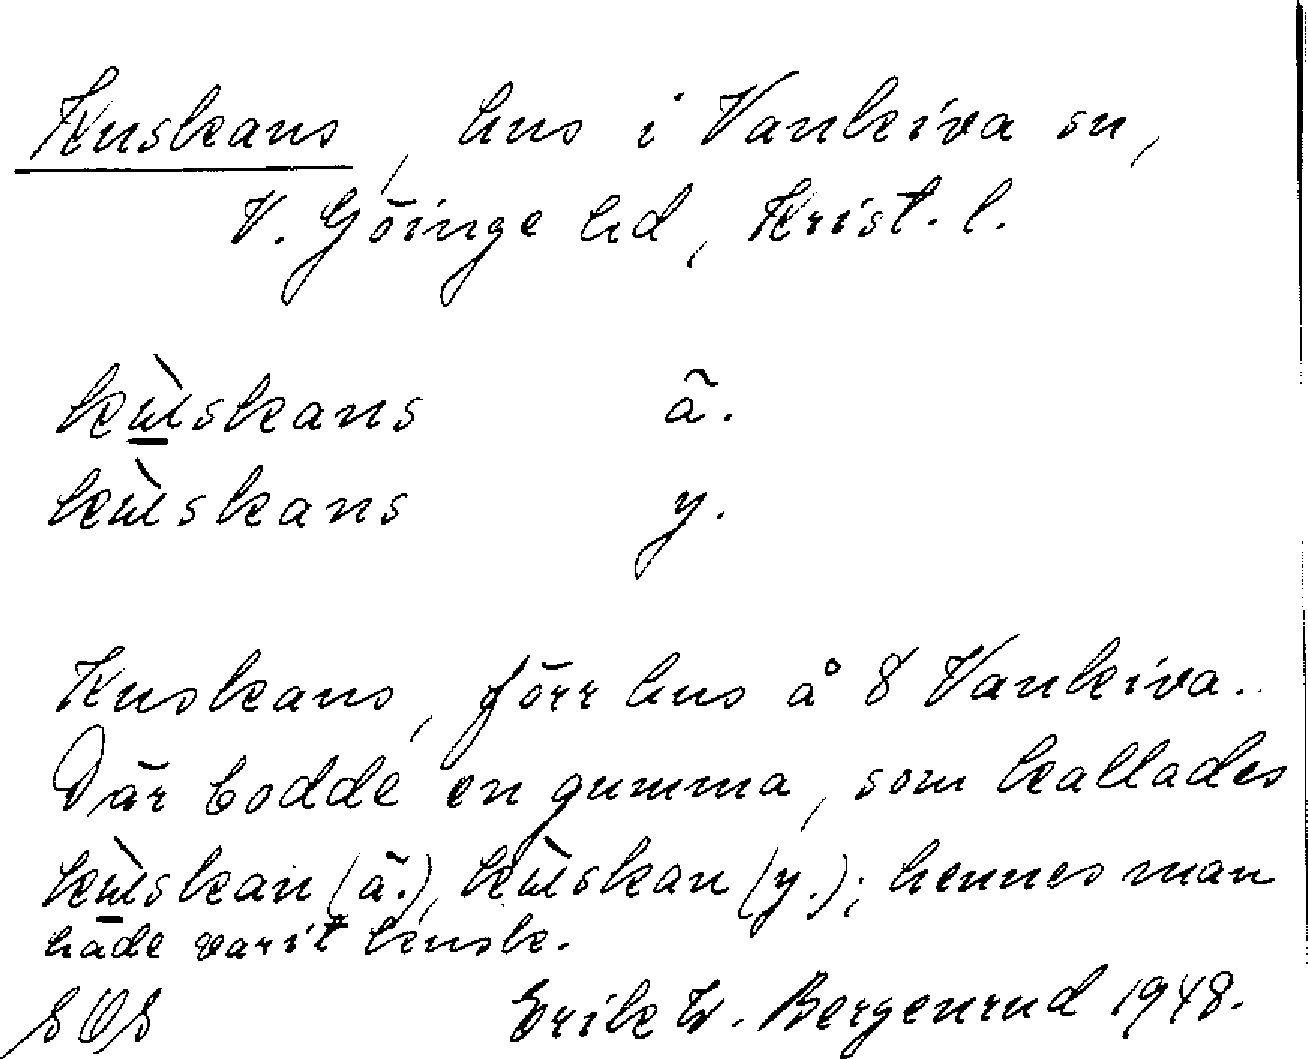 Kuskans, hus i Vankiva sn,
V. Göinge hd, Krist. l.
kùskans ä.
kùskans y.
Kuskans, förr hus å 8 Vankiva.
Där bodde en gumma, som kallades
kùskan (ä.), kùskan (y.); hennes man
hade varit kusk.
SOS Erik W. Bergenrud 1948.